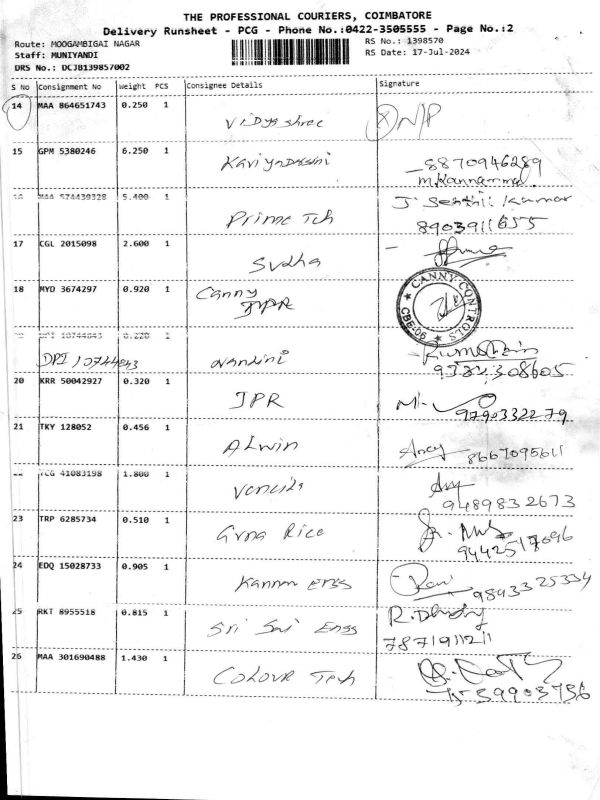 THE PROFESSIONAL COURIERS, COIMBATORE
Delivery Runsheet - PCG - Phone No.:0422-3505555 - Page No.:2
Route: MOOGAMBIGAI NAGAR RS No.: 1398570
Staff: MUNIYANDI RS Date: 17-Jul-2024
DRS No.: DCJB139857002
S No Consignment No Weight PCS Consignee Details Signature
14 MAA 864651743 0.250 1 Vidyashree N/P
15 GPM 5380246 6.250 1 8870946289
M.Kannammal
MAA 574439328 5.400 1 Prime Tch J. Senthil Kumar
8903911655
17 CGL 2015098 2.600 1 Sudha
18 MYD 3674297 0.920 1 Canny
JVPR
CANNY CONTROLS
CBE-06
DPI 10744843 0.220 1
DPI 10744843 Nandini
9384308605
20 KRR 50042927 0.320 1 JPR 9790332279
21 TKY 128052 0.456 1 Alwin 8667095611
TCG 41083198 1.800 1
9489832673
23 TRP 6285734 0.510 1 Rice
9442517096
24 EDQ 15028733 0.905 1 Kannan Engs Ravi 9893325334
25 RKT 8955518 0.815 1 Sri Sai Engs
7871911211
26 MAA 301690488 1.430 1 Colour Tech